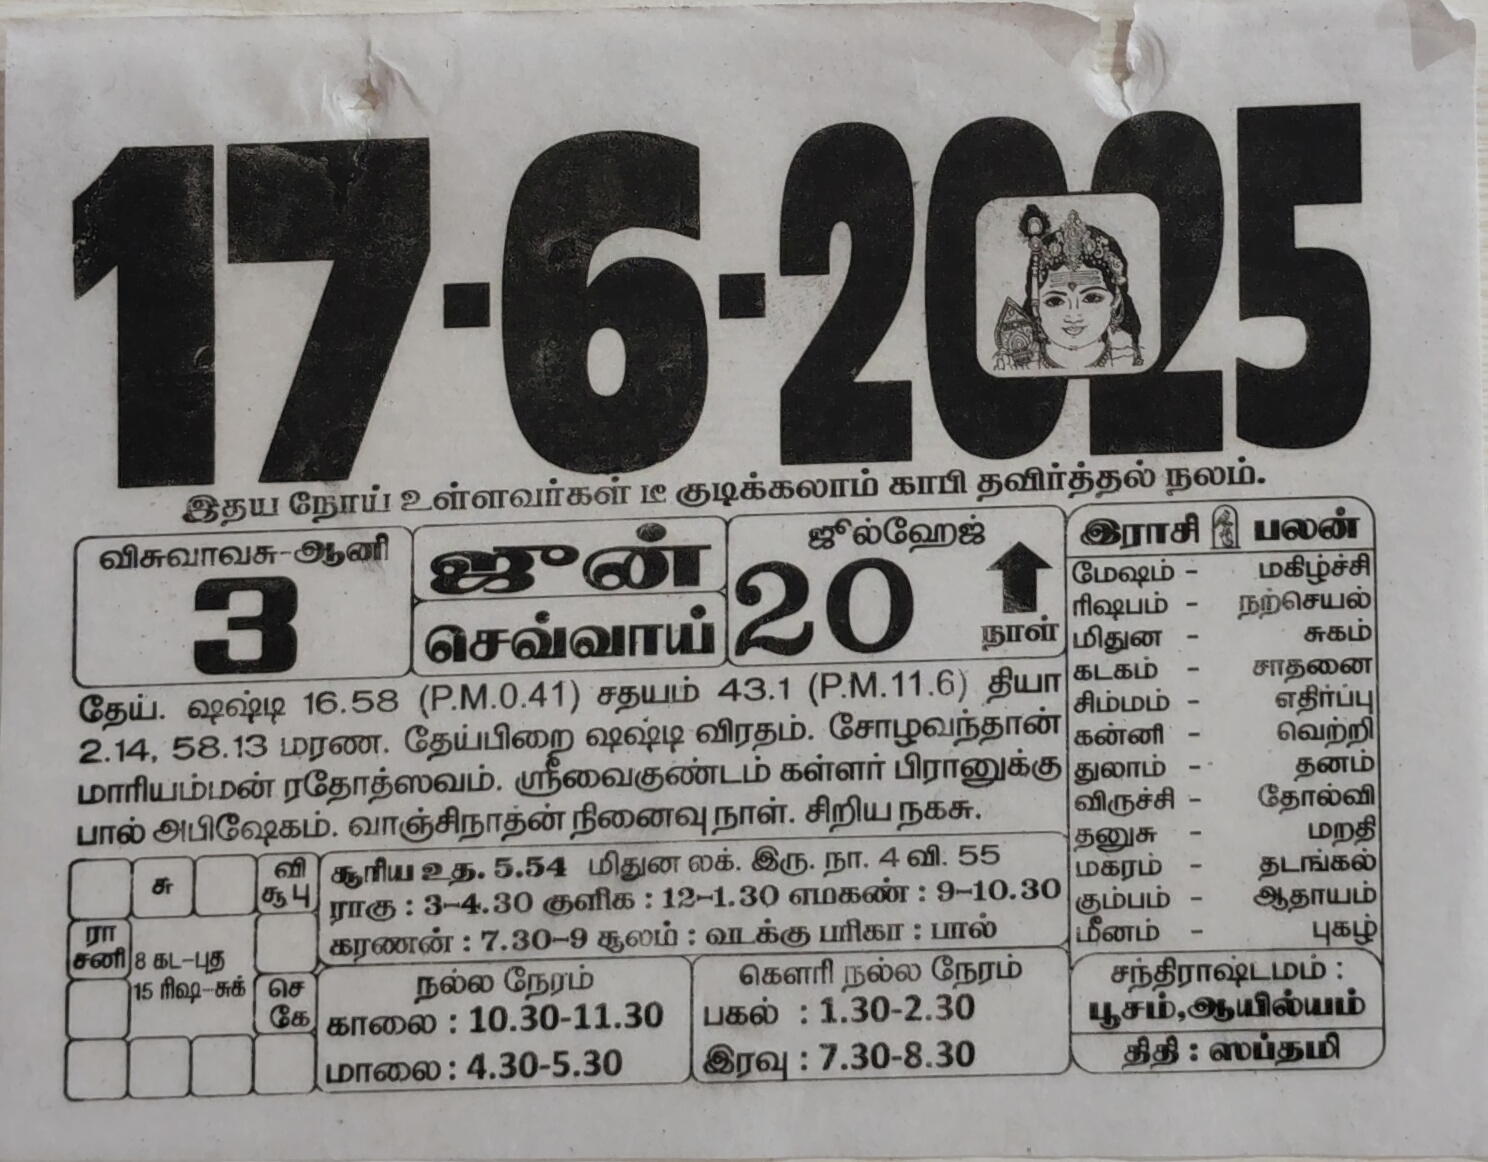 17-6-2025
இதய நோய் உள்ளவர்கள் டீ குடிக்கலாம் காபி தவிர்த்தல் நலம்.
விசுவாவசு-ஆனி
3
ஜுன்
செவ்வாய்
ஜூல்ஹேஜ்
20
நாள்
தேய். ஷஷ்டி 16.58 (P.M.0.41) சதயம் 43.1 (P.M.11.6) தியா
2.14, 58.13 மரண. தேய்பிறை ஷஷ்டி விரதம். சோழவந்தான்
மாரியம்மன் ரதோத்ஸவம். ஸ்ரீவைகுண்டம் கள்ளர் பிரானுக்கு
பால் அபிஷேகம். வாஞ்சிநாதன் நினைவு நாள். சிறிய நகசு.
இராசி பலன்
மேஷம் - மகிழ்ச்சி
ரிஷபம் - நற்செயல்
மிதுன - சுகம்
கடகம் - சாதனை
சிம்மம் - எதிர்ப்பு
கன்னி - வெற்றி
துலாம் - தனம்
விருச்சி - தோல்வி
தனுசு - மறதி
மகரம் - தடங்கல்
கும்பம் - ஆதாயம்
மீனம் - புகழ்
சு
வி
சூ பு
ரா
சனி
8 கட-புத
15 ரிஷ-சுக்
செ
கே
சூரிய உத. 5.54 மிதுன லக். இரு. நா. 4 வி. 55
ராகு : 3-4.30 குளிக : 12-1.30 எமகண் : 9-10.30
கரணன் : 7.30-9 சூலம் : வடக்கு பரிகா : பால்
நல்ல நேரம்
காலை : 10.30-11.30
மாலை : 4.30-5.30
கௌரி நல்ல நேரம்
பகல் : 1.30-2.30
இரவு : 7.30-8.30
சந்திராஷ்டமம் :
பூசம்,ஆயில்யம்
திதி : ஸப்தமி